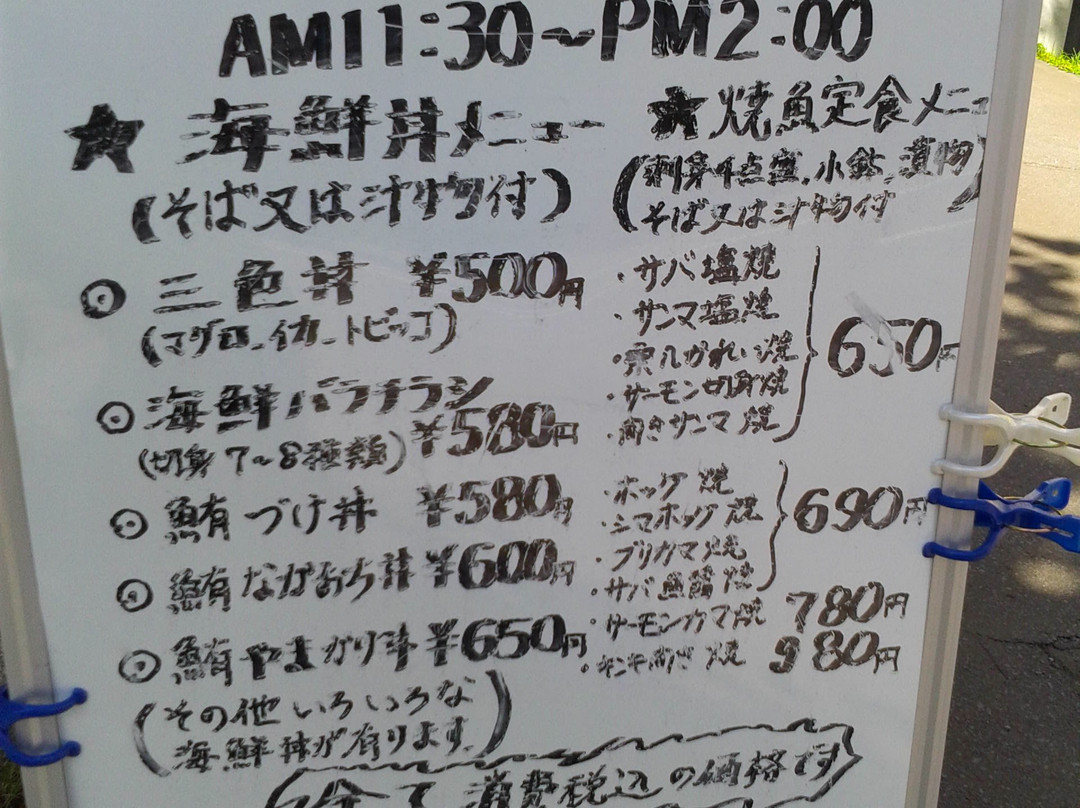 AM11:30~PM2:00
★海鮮丼メニュー
(そば又は汁物付)
◉三色丼 ¥500円
(マグロ、イカ、トビッコ)
◉海鮮バラチラシ
(切身7~8種類) ¥580円
◉鮪づけ丼 ¥580円
◉鮪ながおち丼 ¥600円
◉鮪やまかけ丼 ¥650円
(その他いろいろな
海鮮丼が有ります。)
★焼魚定食メニュ
(刺身4点盛、小鉢、漬物
そば又は汁物付)
・サバ塩焼
・サンマ塩焼
・宗八かれい焼
・サーモン切身焼
・開きサンマ焼
650円
・ホッケ焼
・シマホッケ焼
・ブリカマ焼
・サバ魚醤焼
690円
・サーモンカマ焼 780円
・キンキ開き焼 980円
全て消費税込の価格です